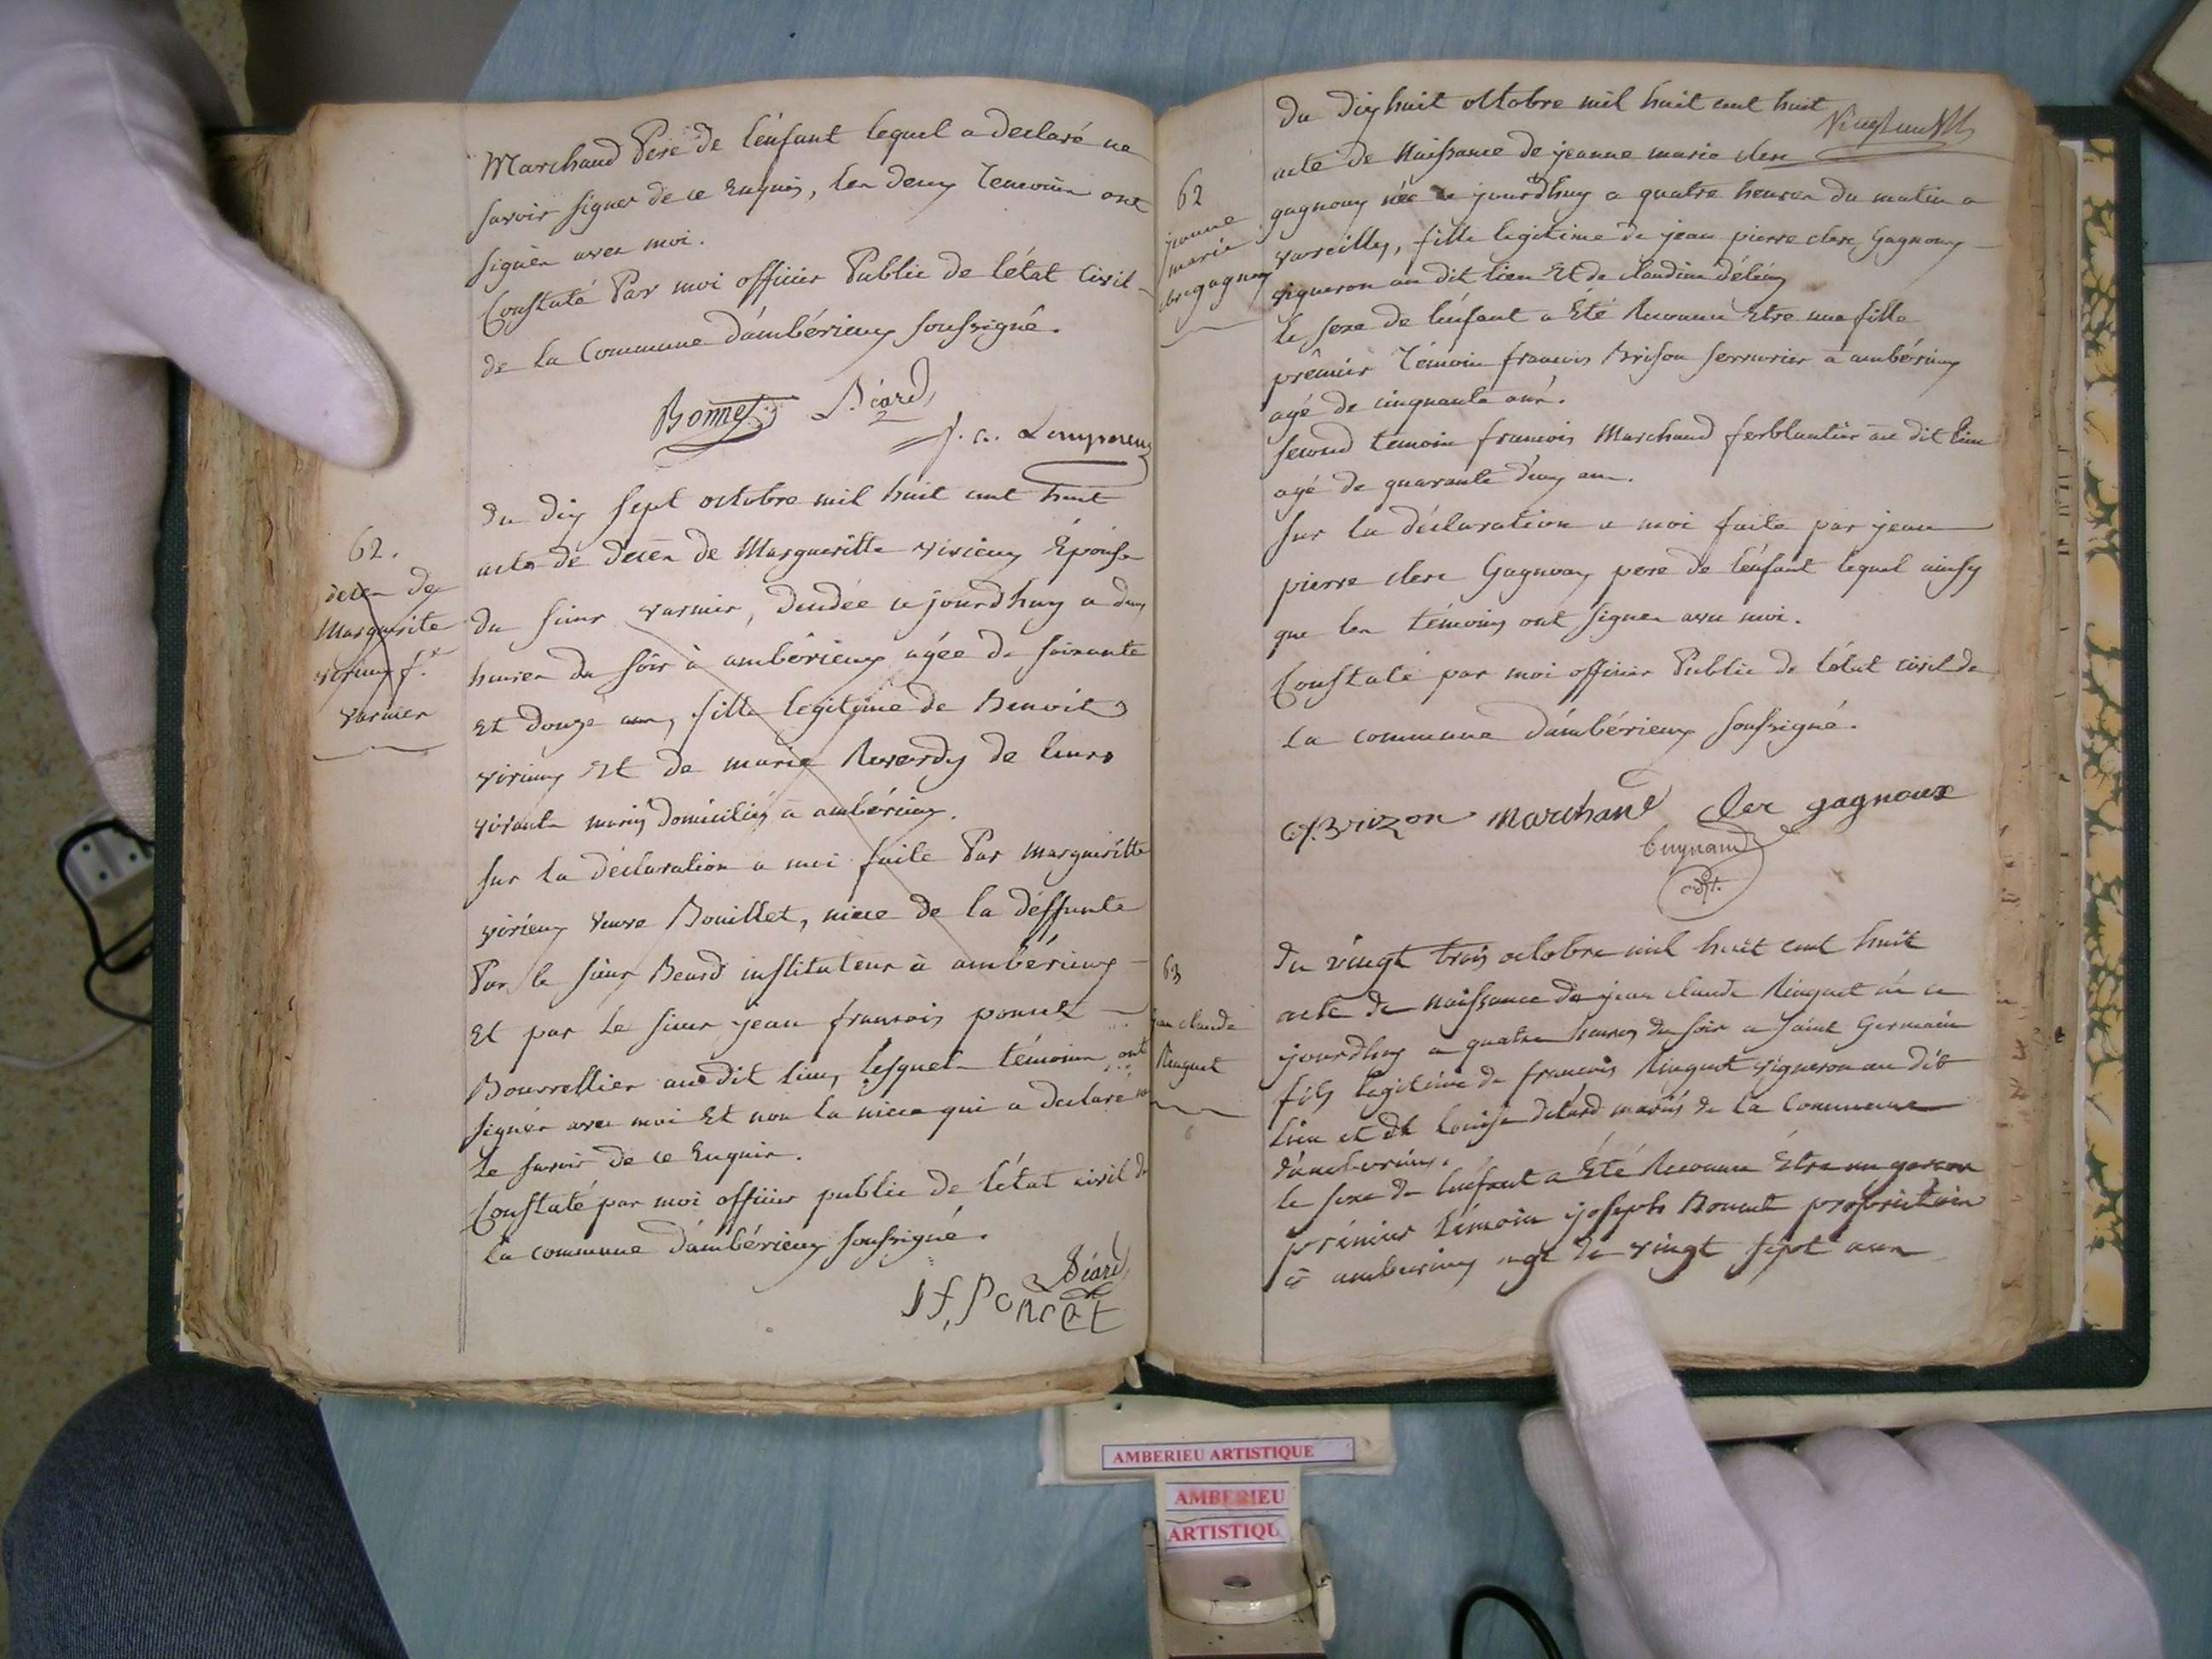 Marchand Pere de l'enfant lequel a declaré ne
savoir signer de ce Enquis, les deux Temoins ont
signés avec moi.
Constaté Par moi officier Public de l'état Civil
de la Commune d'ambérieux soussigné.
Bonnet Béard
du dix sept octobre mil huit cent huit
62.
decès de
Marguerite
virieux f.e
Varnier
acte de decès de Margueritte virieux Épouse
du sieur varnier, décédée ce jourdhuy a deux
heures du soir à ambérieux agée de soixante
Et douze ans, fille legitime de Benoit
virieux Et de marie Reverdy de leurs
vivants mariés domiciliés a ambérieux.
sur la déclaration a moi faite Par margueritte
virieux veuve Bouillet, niece de la déffunte
Par le sieur Beard instituteur à ambérieux
Et par le sieur jean francois poncet
Bourrellier au dit lieu, lesquels témoins ont
signés avec moi Et non la niece qui a declaré ne
le savoir de ce Enquis.
Constaté par moi officier public de l'état civil de
la commune d'ambérieux soussigné.
Béard
J f, Poncet
du dix huit octobre mil huit cent huit
62
jeanne
marie
clere gagnoux
acte de Naissance de jeanne marie clerc
gagnoux née ce jourdhuy a quatre heures du matin a
vareilles, fille legitime de jean pierre clerc Gagnoux
vigneron au dit lieu Et de claudine
le sexe de l'enfant a Eté Reconnu Etre une fille
prémier Témoin francois Brison serrurier a ambérieux
agé de cinquante ans.
second temoin francois Marchand ferblantier au dit lieu
agé de quarante deux ans.
sur la déclaration a moi faite par jean
pierre clerc Gagnoux pere de l'enfant lequel ainsy
que les témoins ont signés avec moi.
Constaté par moi officier Public de l'état civil de
la commune d'ambérieux soussigné.
Brizon marchand cler gagnoux
adjt.
63
jean claude
Ringuet
du vingt trois octobre mil huit cent huit
acte de naissance de jean claude Ringuet né ce
jourdhuy a quatre heures du soir a saint Germain
fils legitime de francois Ringuet vigneron au dit
lieu et de louise mariés de la Commune
d'ambérieux.
le sexe de l'enfant a Été Reconnu Étre un garcon
prémier témoin joseph Bonnet propriétaire
à amberieux agé de vingt sept ans
AMBERIEU ARTISTIQUE
AMBERIEU
ARTISTIQU